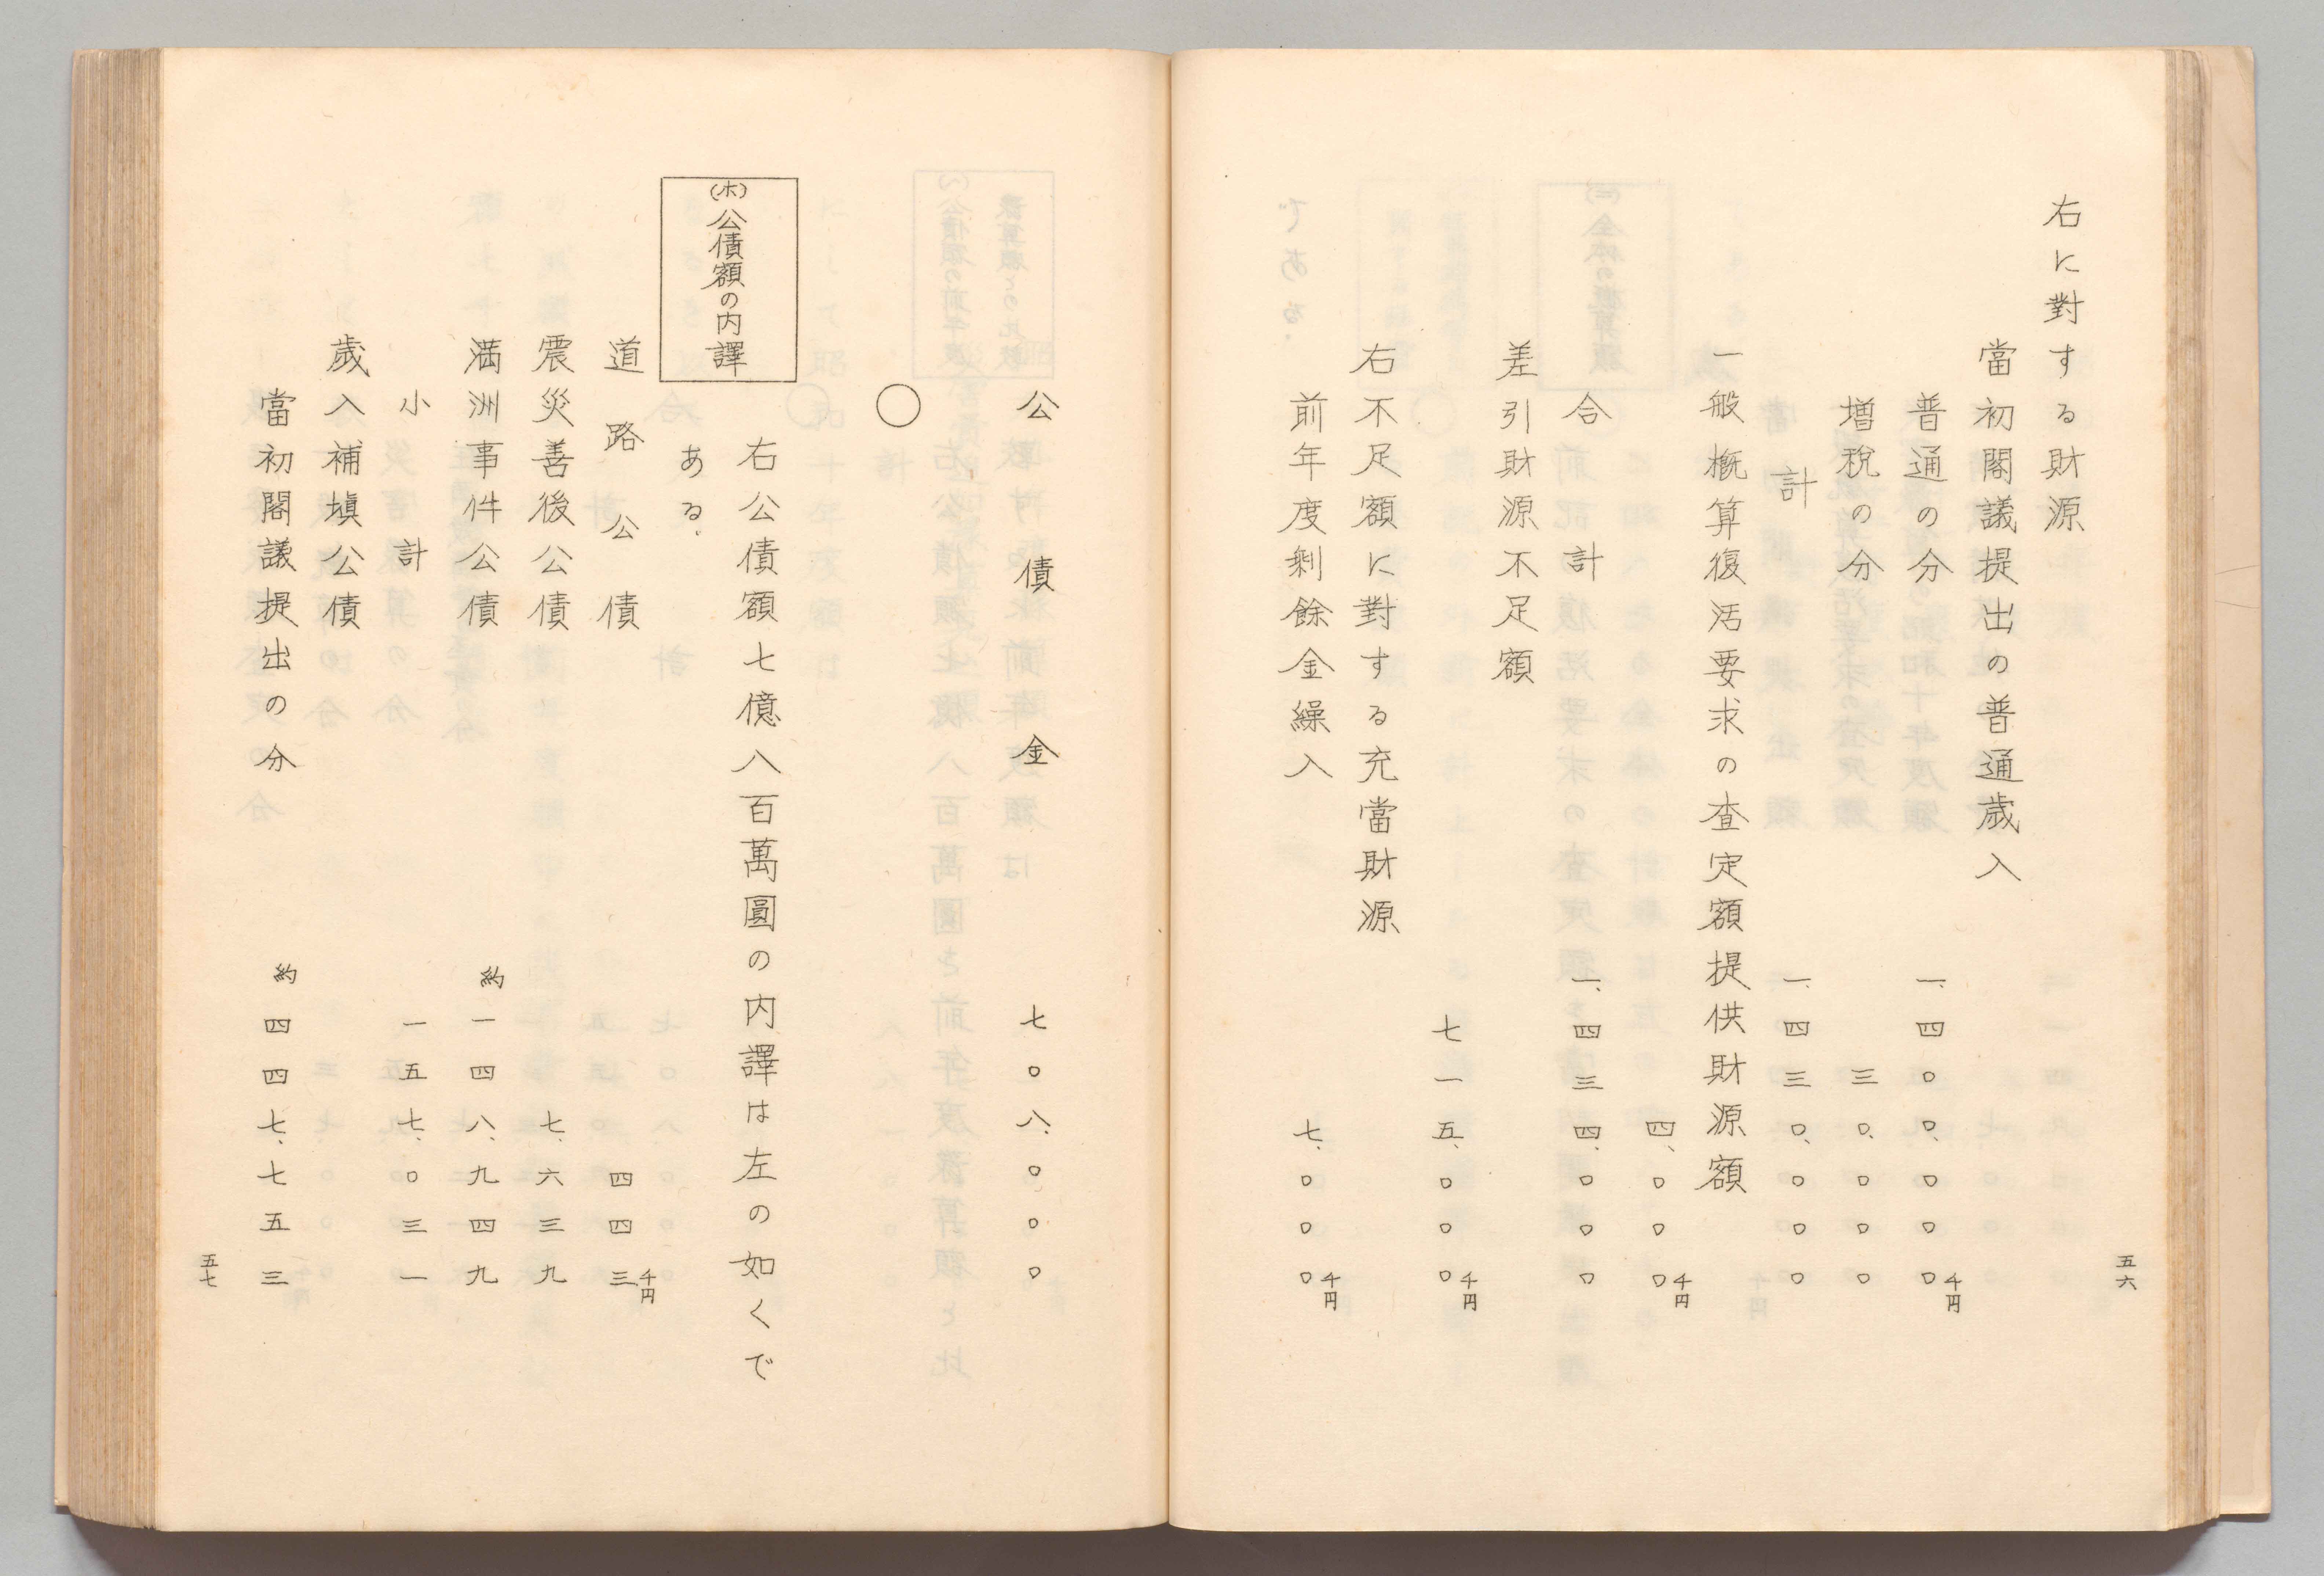 五六
右に對する財源
當初閣議提出の普通歳入
普通の分 一、四〇〇、〇〇〇千円
増税の分 三〇、〇〇〇
計 一、四三〇、〇〇〇
一般概算復活要求の査定額提供財源額
四、〇〇〇千円
合計 一、四三四、〇〇〇
差引財源不足額
七一五、〇〇〇千円
右不足額に對する充當財源
前年度剰餘金繰入 七、〇〇〇千円
公債金 七〇八、〇〇〇
〇
(ホ)公債額の内譯
右公債額七億八百萬圓の内譯は左の如くで
ある.
道路公債 四四三千円
震災善後公債 七、六三九
満洲事件公債 約一四八、九四九
小計 一五七、〇三一
歳入補塡公債
當初閣議提出の分 約四四七、七五三
五七